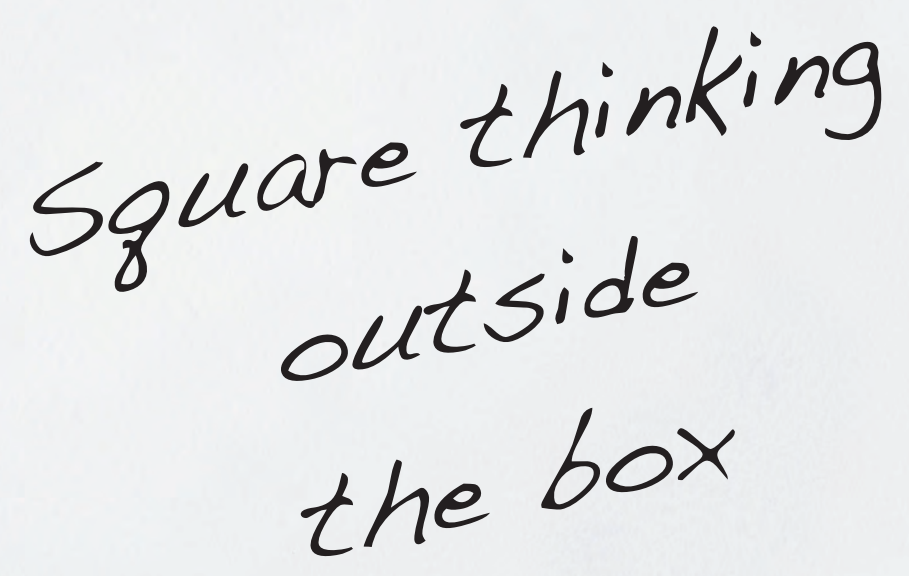 Square thinking
outside
the box